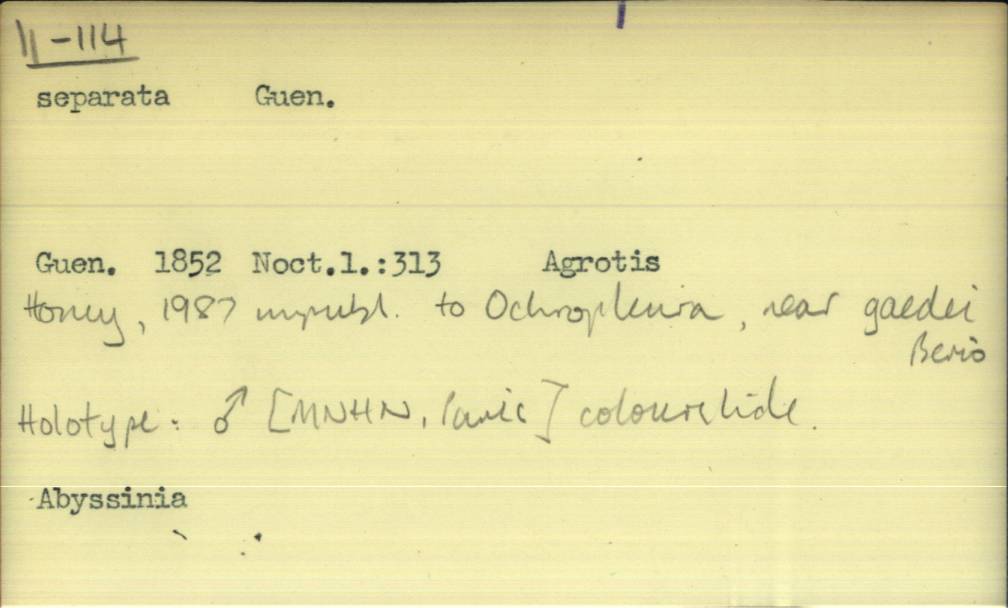 11-114
separata Guen.
Guen. 1852 Noct.1.:313 Agrotis
Honey, 1987 unpubl. to Ochropleura, near gaedei
Berio
Holotype: ♂ [MNHN, Paris] colourslide.
Abyssinia